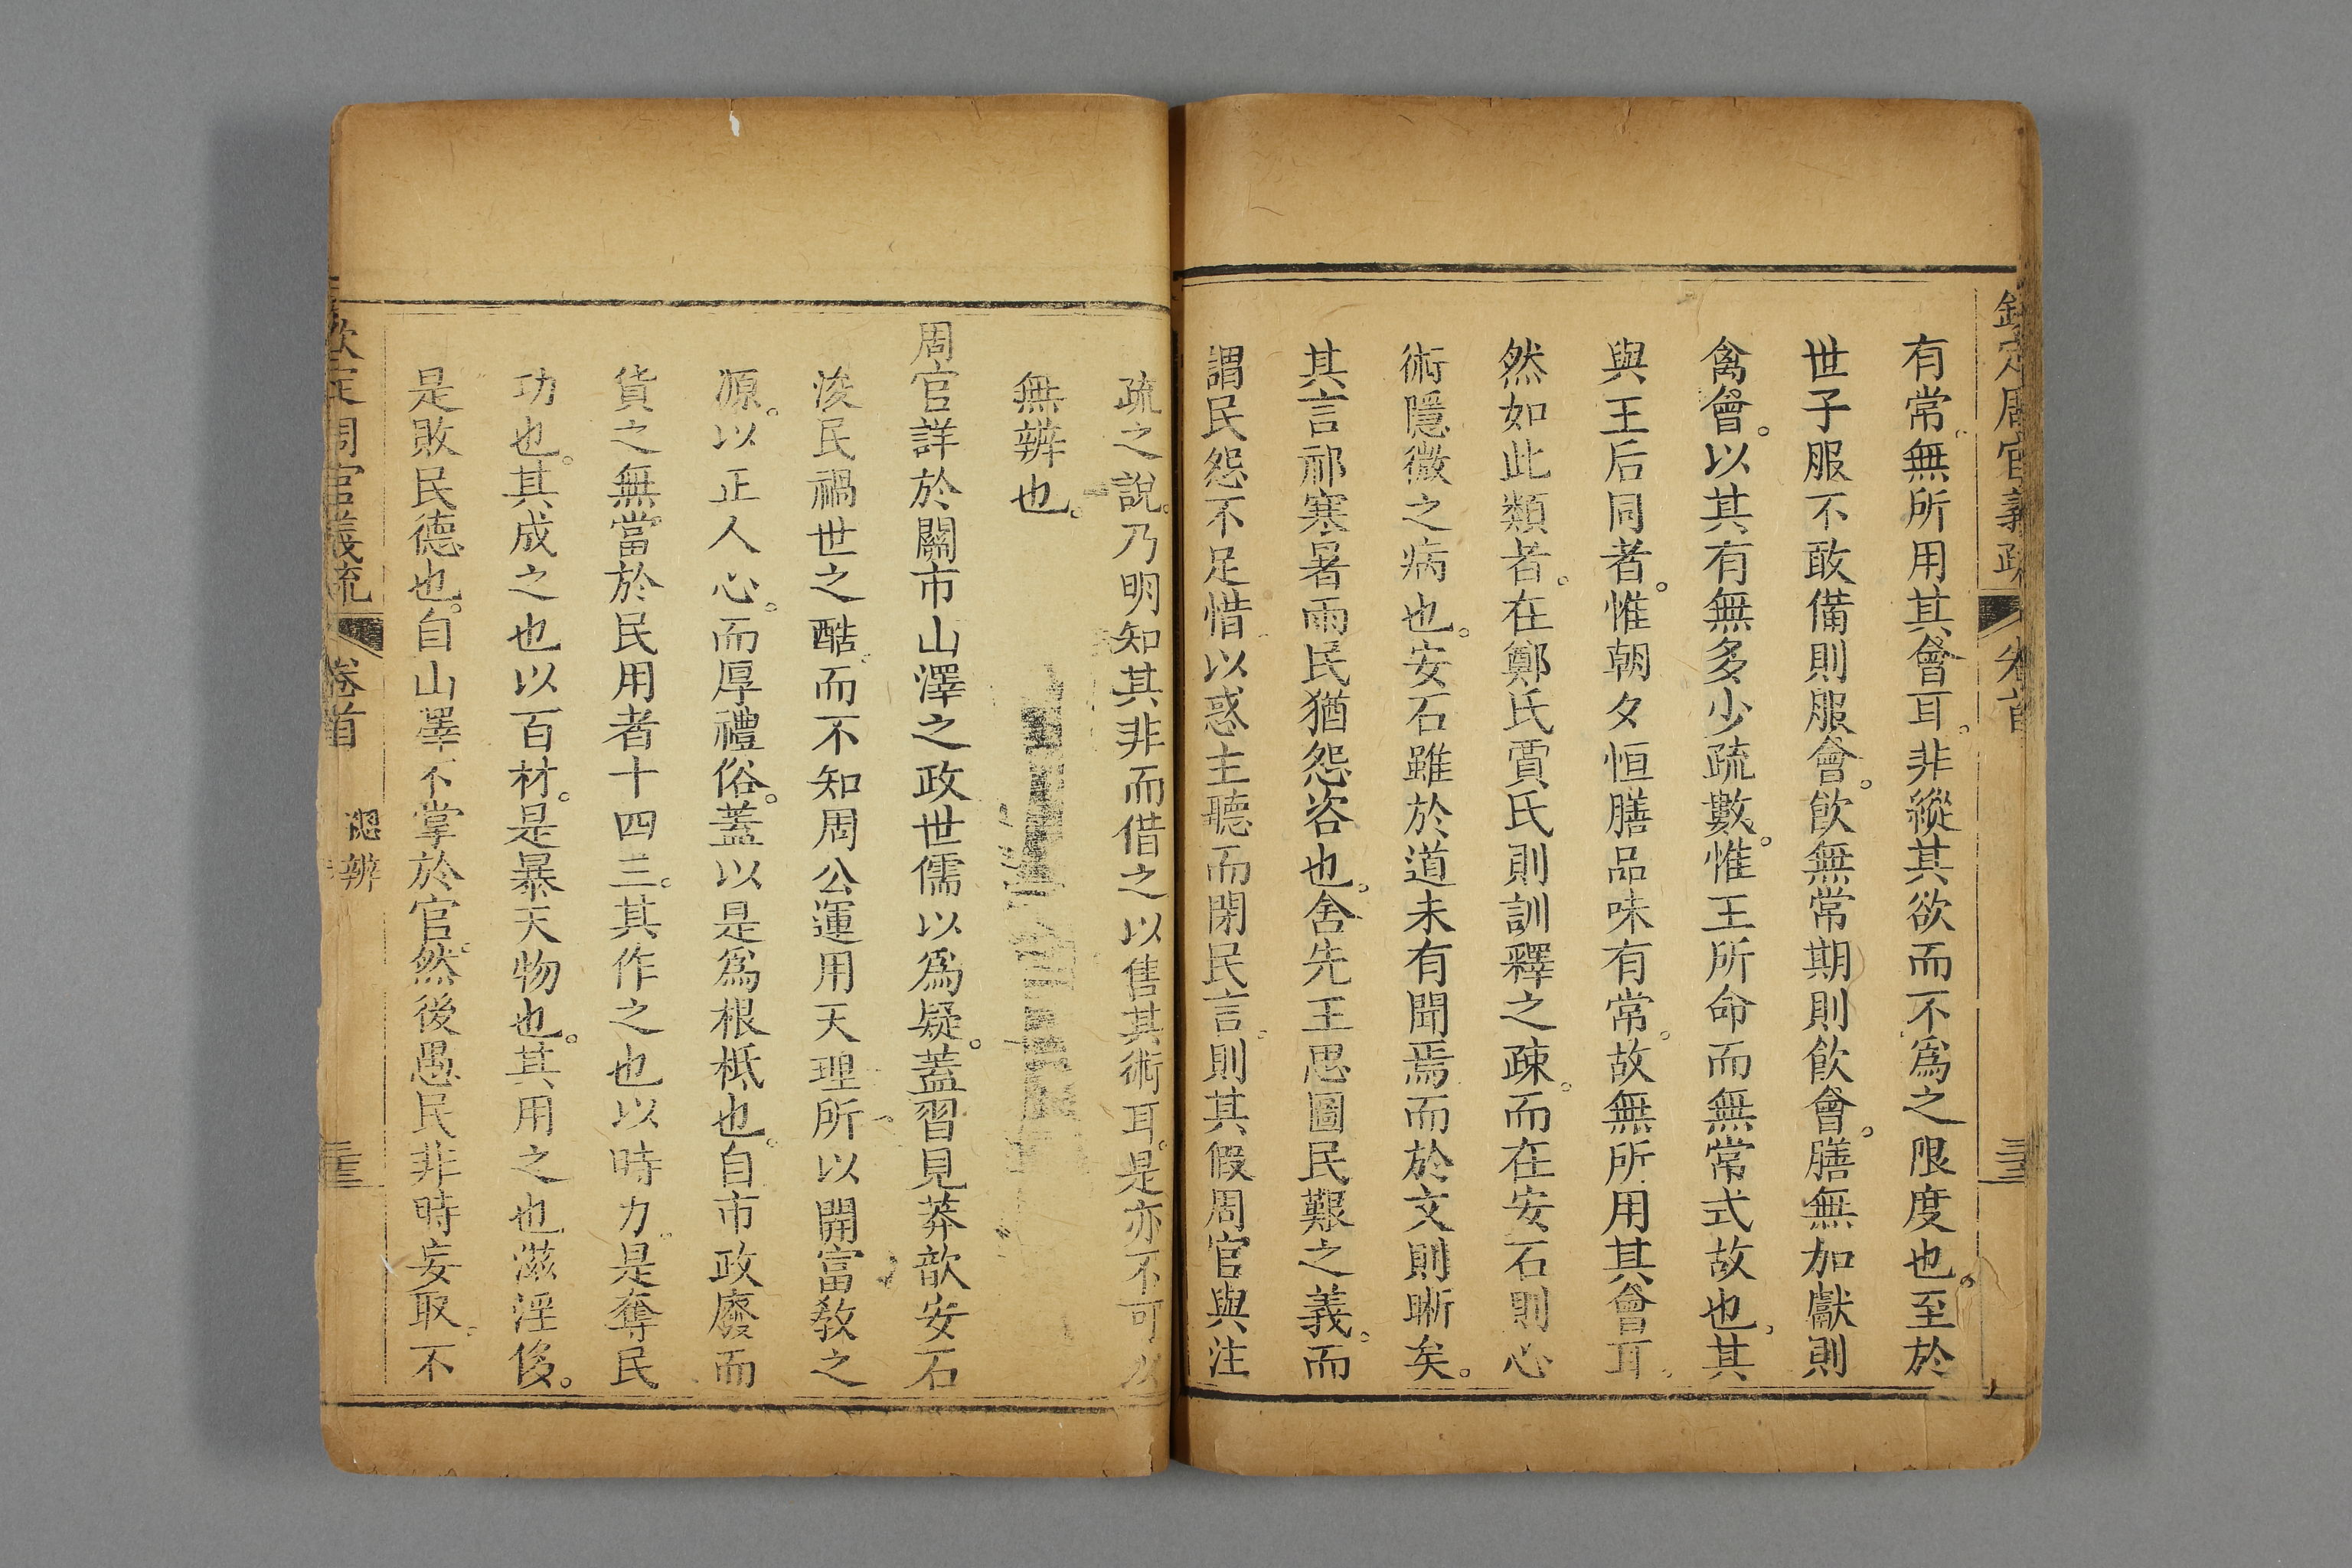 欽定周官義疏 卷首
有常。無所用其會耳。非縱其欲而不爲之限度也。至於
世子服不敢備則服會。飲無常期則飲會。膳無加獻則
禽會。以其有無多少疏數。惟王所命而無常式故也。其
與王后同者。惟朝夕恒膳品味有常。故無所用其會耳。
然如此類者。在鄭氏賈氏則訓釋之疎。而在安石則心
術隱微之病也。安石雖於道未有聞焉而於文則晰矣。
其言祁寒暑雨民猶怨咨也。舍先王思圖民艱之義。而
謂民怨不足惜。以惑主聽而閉民言。則其假周官與注
疏之說。乃明知其非而借之以售其術耳。是亦不可以
無辨也。
周官詳於關市山澤之政世儒以爲疑。蓋習見莽歆安石
浚民禍世之酷。而不知周公運用天理所以開富敎之
源。以正人心。而厚禮俗。蓋以是爲根柢也。自市政廢而
貨之無當於民用者十四三。其作之也以時力。是奪民
功也。其成之也以百材。是暴天物也。其用之也滋淫侈。
是敗民德也。自山澤不掌於官。然後愚民非時妄取。不
欽定周官義疏 卷首 總辨